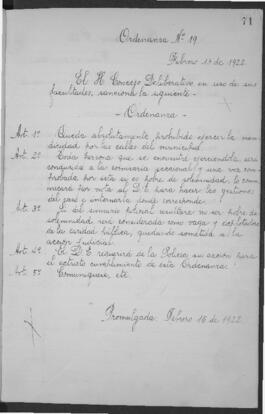 71
Ordenanza Nº 19
Febrero 15 de 1922.
El H. Concejo Deliberativo en uso de sus
facultades, sanciona la siguiente -
- Ordenanza -
Art. 1º Queda absolutamente prohibido ejercer la men-
dicidad por las calles del municipio
Art. 2º Toda persona que se encuentre ejerciéndola será
conducida a la comisaría seccional y una vez com-
probada por ésta su pobreza de solemnidad, lo comu-
nicará por nota al D.E. para hacer las gestiones
del caso e internarla donde corresponde.
Art. 3º Si del sumario policial resultare no ser pobre de
solemnidad será considerada como vaga y explotadora
de la caridad pública, quedando sometida a la
acción judicial.
Art. 4º El D.E. requerirá de la Policía su acción para
el estricto cumplimiento de esta Ordenanza.
Art. 5º Comuníquese, etc.
Promulgada: Febrero 16 de 1922